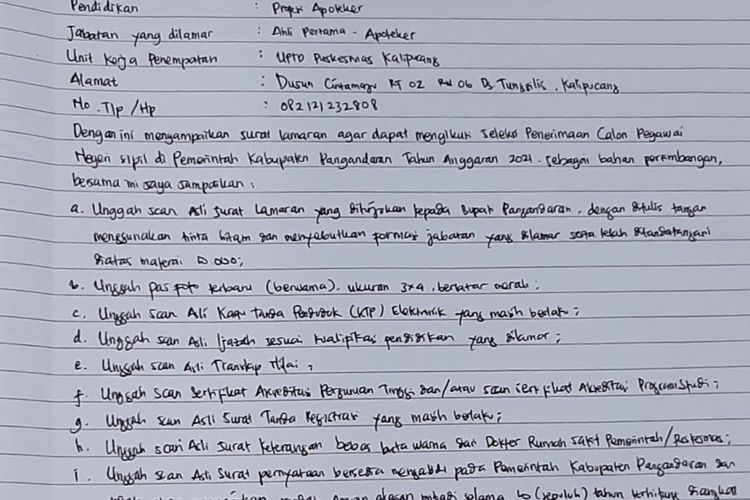 Pendidikan : Propesi Apoteker
Jabatan yang dilamar : Ahli Pertama - Apoteker
Unit Kerja Penempatan : UPTD Puskesmas Kalipucang
Alamat : Dusun RT 02 RW 06 Ds Tunggilis, Kalipucang
No. Tlp / Hp : 082121232808
Dengan ini menyampaikan surat lamaran agar dapat mengikuti seleksi Penerimaan Calon Pegawai
Negeri Sipil di Pemerintah Kabupaten Pangandaran Tahun Anggaran 2021. Sebagai bahan pertimbangan,
bersama ini saya sampaikan :
a. Unggah scan Asli Surat Lamaran yang ditujukan kepada Bupati Pangandaran, dengan ditulis tangan
menggunakan tinta hitam dan menyebutkan formasi jabatan yang dilamar serta telah ditandatangani
diatas materai 10.000;
b. Unggah pas foto terbaru (berwarna). ukuran 3x4, berlatar merah;
c. Unggah scan Asli Kartu Tanda Penduduk (KTP) Elektronik yang masih berlaku;
d. Unggah scan Asli Ijazah sesuai kualifikasi pendidikan yang dilamar;
e. Unggah scan Asli Transkip Nilai;
f. Unggah scan Sertifikat Akreditasi Perguruan Tinggi dan/atau scan sertifikat Akreditasi Program Studi;
g. Unggah scan Asli Surat Tanda Registrasi yang masih berlaku;
h. Unggah scan Asli Surat keterangan bebas buta warna dari Dokter Rumah Sakit Pemerintah / Puskesmas;
i. Unggah scan Asli Surat pernyataan bersedia mengabdi pada Pemerintah Kabupaten Pangandaran dan
dengan alasan pribadi selama 10 (sepuluh) tahun terhitung diangkat